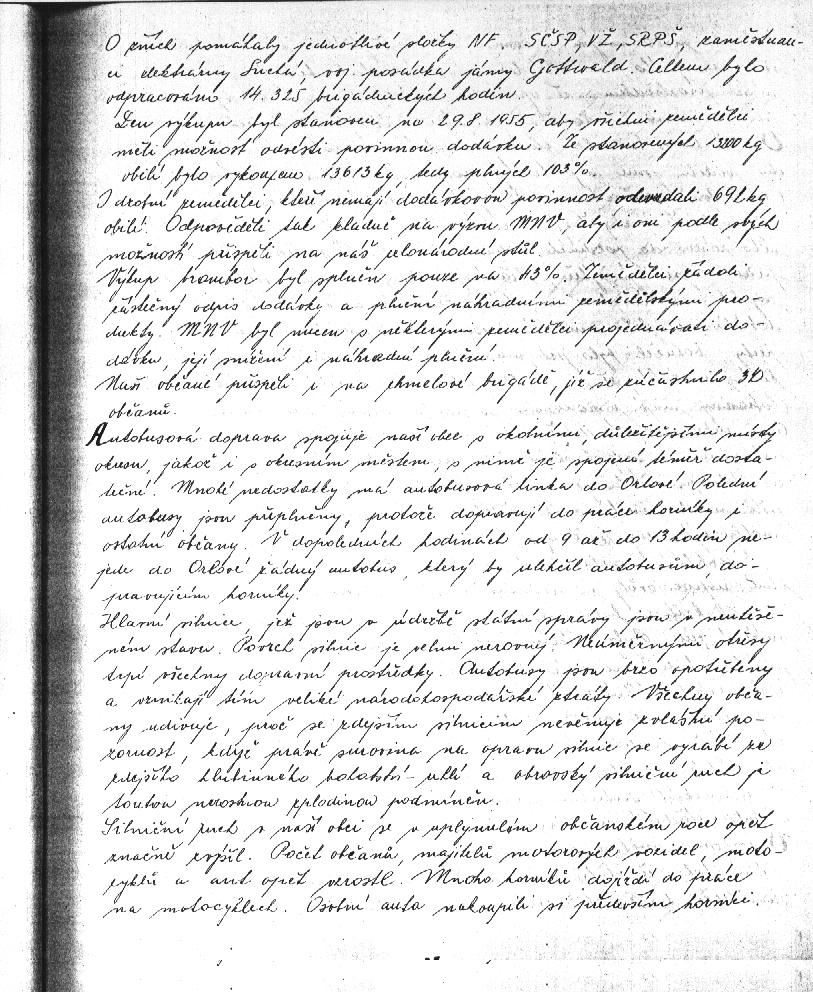 O žních pomáhaly jednotlivé složky NF. SČSP, VŽ, SRPŠ, zaměstnan-
ci elektrárny Suchá, voj. posádka jámy Gottwald. Celkem bylo
odpracováno 14.325 brigádnických hodin.
Den výkupu byl stanoven na 29.8. 1955, aby všichni zemědělci
měli možnost odvésti povinnou dodávku. Ze stanovených 13200 kg
obilí bylo vykoupeno 13613 kg, tedy plných 103%.
I drobní zemědělci, kteří nemají dodávkovou povinnost odevzdali 692 kg
obilí. Odpověděli tak kladně na výzvu MNV aby i oni podle svých
možností přispěli na náš celonárodní stůl.
Výkup brambor byl splněn pouze na 43%. Zemědělci žádali
částečný odpis dodávky a plnění náhradními zemědělskými pro-
dukty. MNV byl nucen s některými zemědělci projednávati do-
dávku, její snížení i náhradní plnění.
Naši občané přispěli i na chmelové brigádě, jíž se zúčastnilo 30
občanů.
Autobusová doprava spojuje naši obec s okolními, důležitějšími místy
okresu, jakož i s okresním městem, s nímž je spojení téměř dosta-
tečné. Mnohé nedostatky má autobusová linka do Orlové. Polední
autobusy jsou přeplněny, protože dopravují do práce horníky i
ostatní občany. V dopoledních hodinách od 9 až do 13 hodin ne-
jede do Orlové žádný autobus, který by ulehčil autobusům, do-
pravujícím horníky.
Hlavní silnice, jež jsou v údržbě státní správy jsou v neutěše-
ném stavu. Povrch silnic je velmi nerovný. Neúměrnými otřesy
trpí všechny dopravní prostředky. Autobusy jsou brzo opotřebeny
a vznikají tím veliké národohospodářské ztráty. Všechny obča-
ny udivuje, proč se zdejším silnicím nevěnuje zvláštní po-
zornost, když právě surovina na opravu silnic se vyrábí ze
zdejšího hlubinného bohatství - uhlí a obrovský silniční ruch je
touto nerostnou zplodinou podmíněn.
Silniční ruch v naší obci se v uplynulém občanském roce opět
značně zvýšil. Počet občanů, majitelů motorových vozidel, moto-
cyklů a aut opět vzrostl. Mnoho horníků dojíždí do práce
na motocyklech. Osobní auta nakoupili si především horníci.